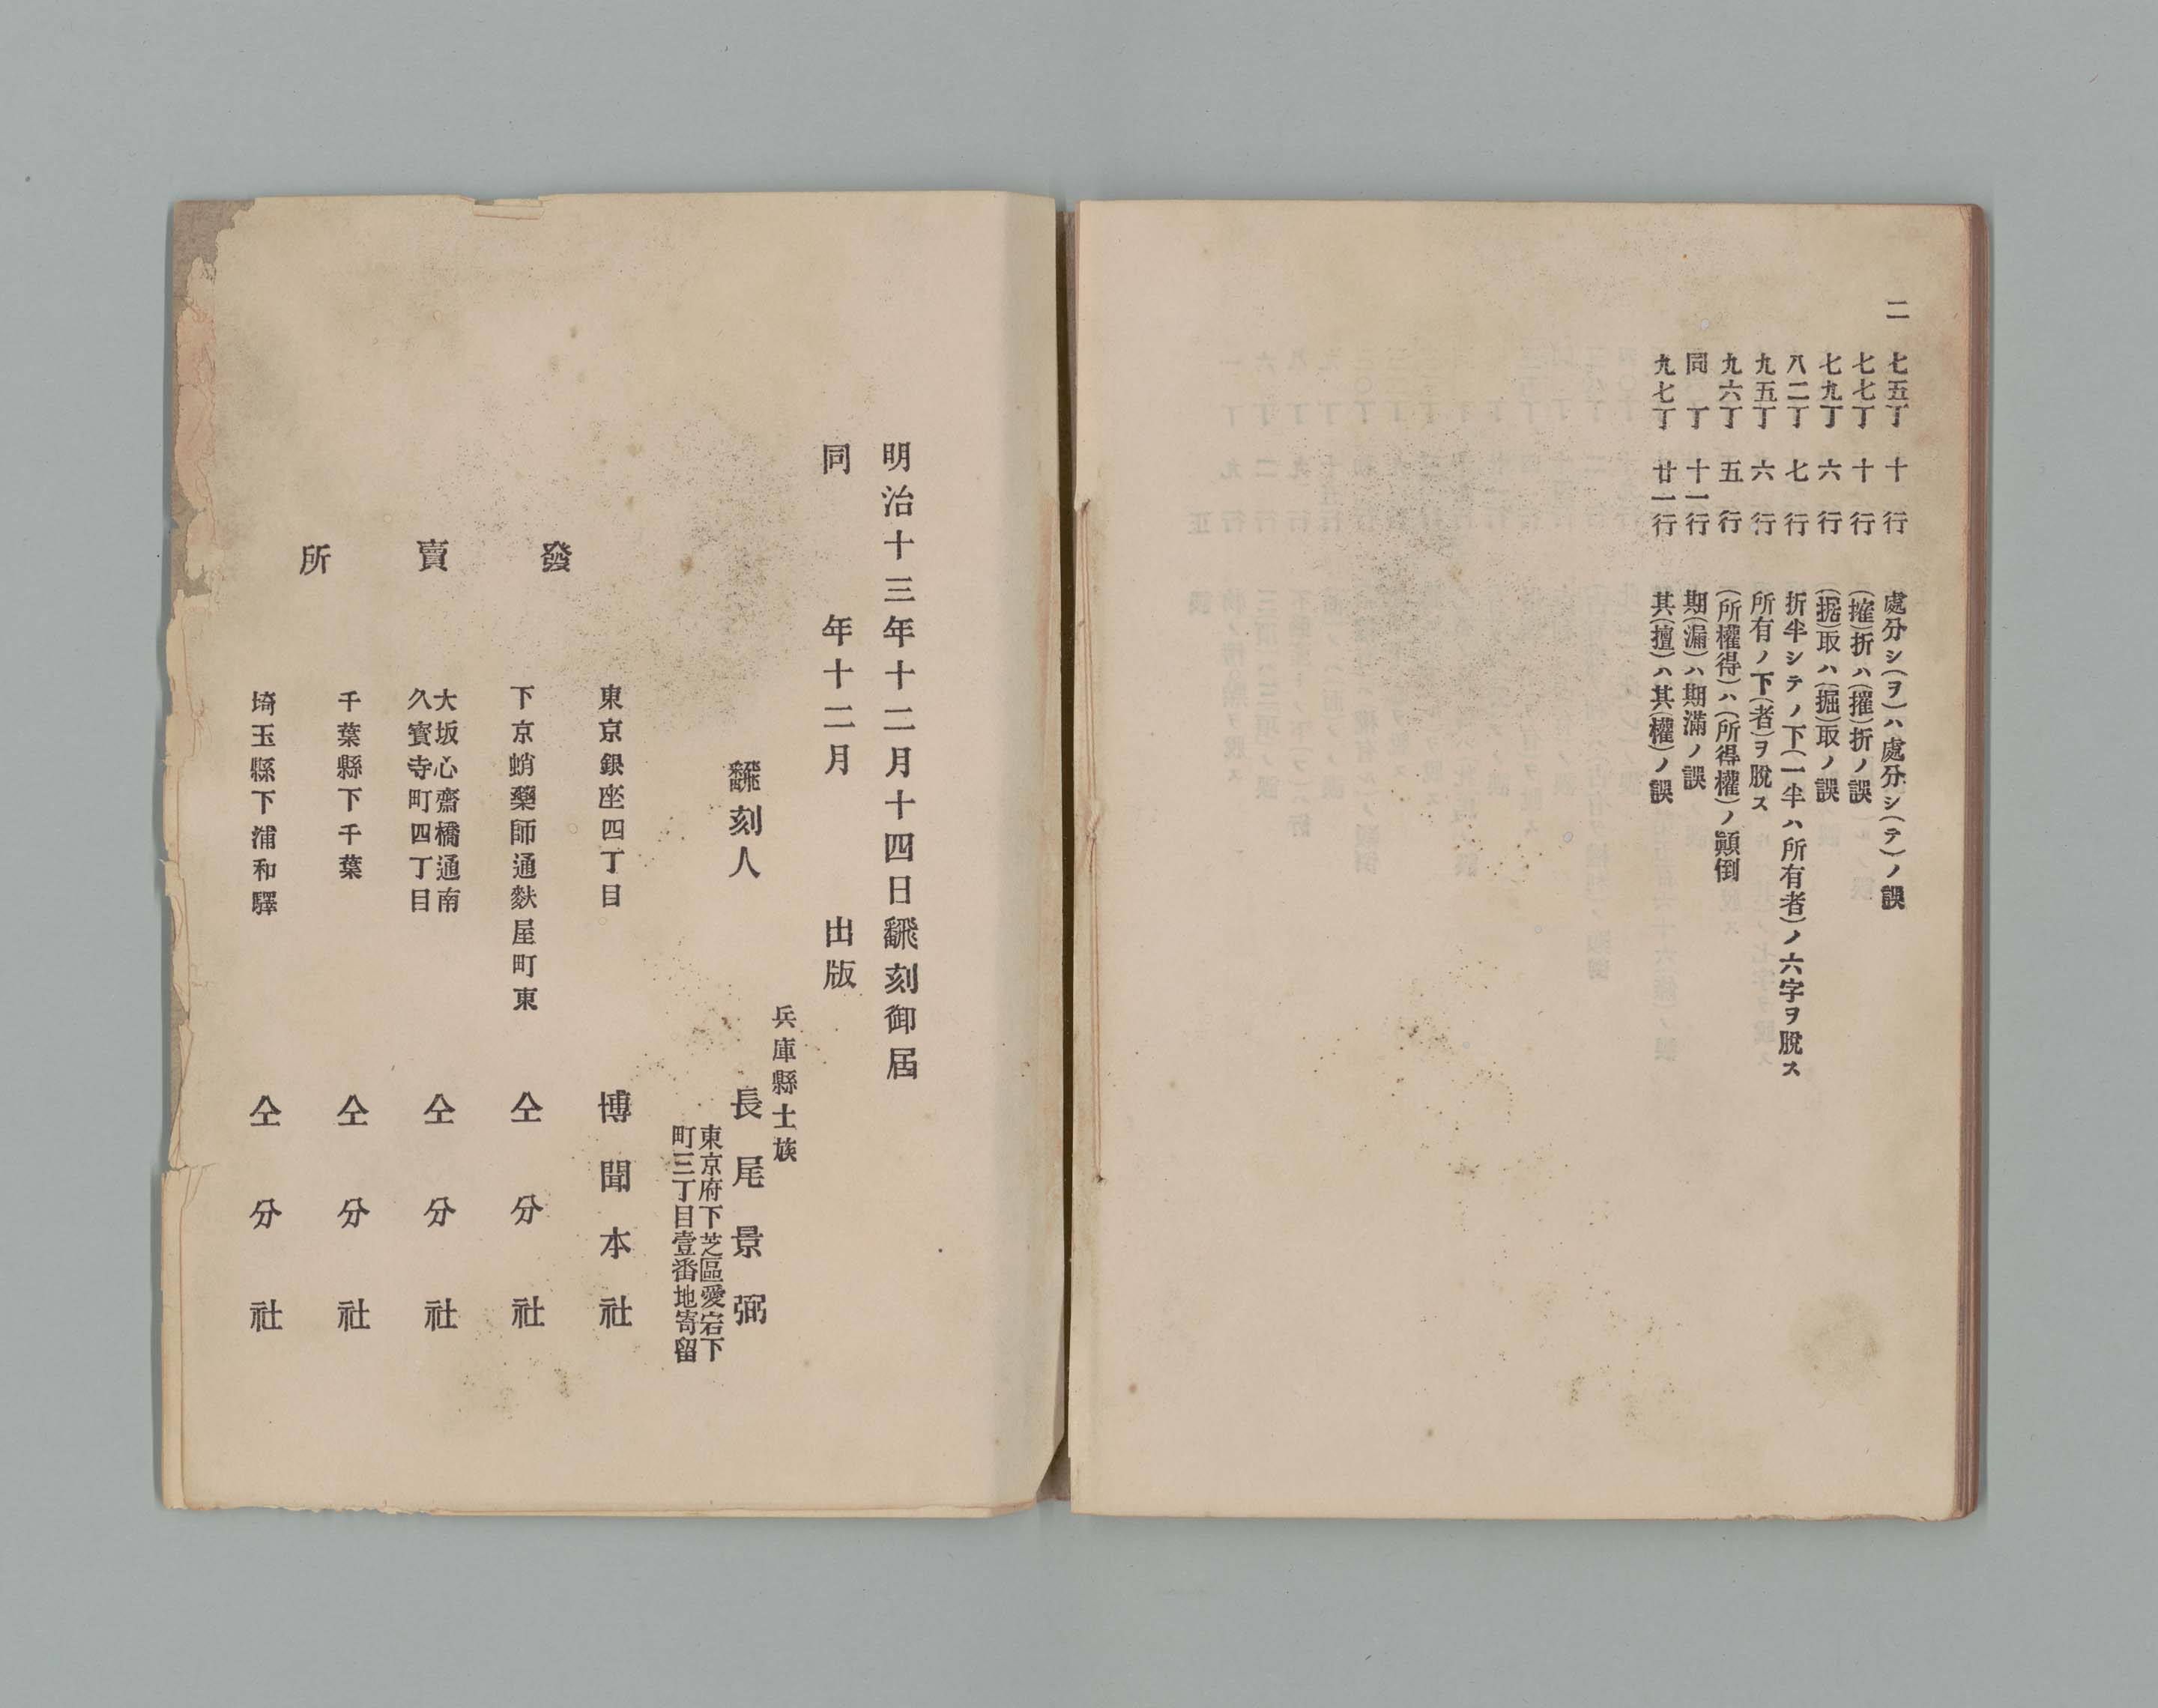 二
七五丁 十行 處分シ(ヲ)ハ處分シ(テ)ノ誤
七七丁 十行 (搉)折ハ(摧)折ノ誤
七九丁 六行 (据)取ハ(掘)取ノ誤
八二丁 七行 折半シテノ下(一半ハ所有者)ノ六字ヲ脫ス
九五丁 六行 所有ノ下(者)ヲ脫ス
九六丁 五行 (所權得)ハ(所得權)ノ顚倒
同丁 十一行 期(漏)ハ期滿ノ誤
九七丁 廿一行 其(擅)ハ其(權)ノ誤
明治十三年十二月十四日飜刻御届
同 年十二月 出版
兵庫縣士族
飜刻人 長尾景弼
東京府下芝區愛宕下
町三丁目壹番地寄留
發賣所
東京銀座四丁目 博聞本社
下京蛸藥師通麩屋町東 仝分社
大坂心齋橋通南
久寶寺町四丁目 仝分社
千葉縣下千葉 仝分社
埼玉縣下浦和驛 仝分社